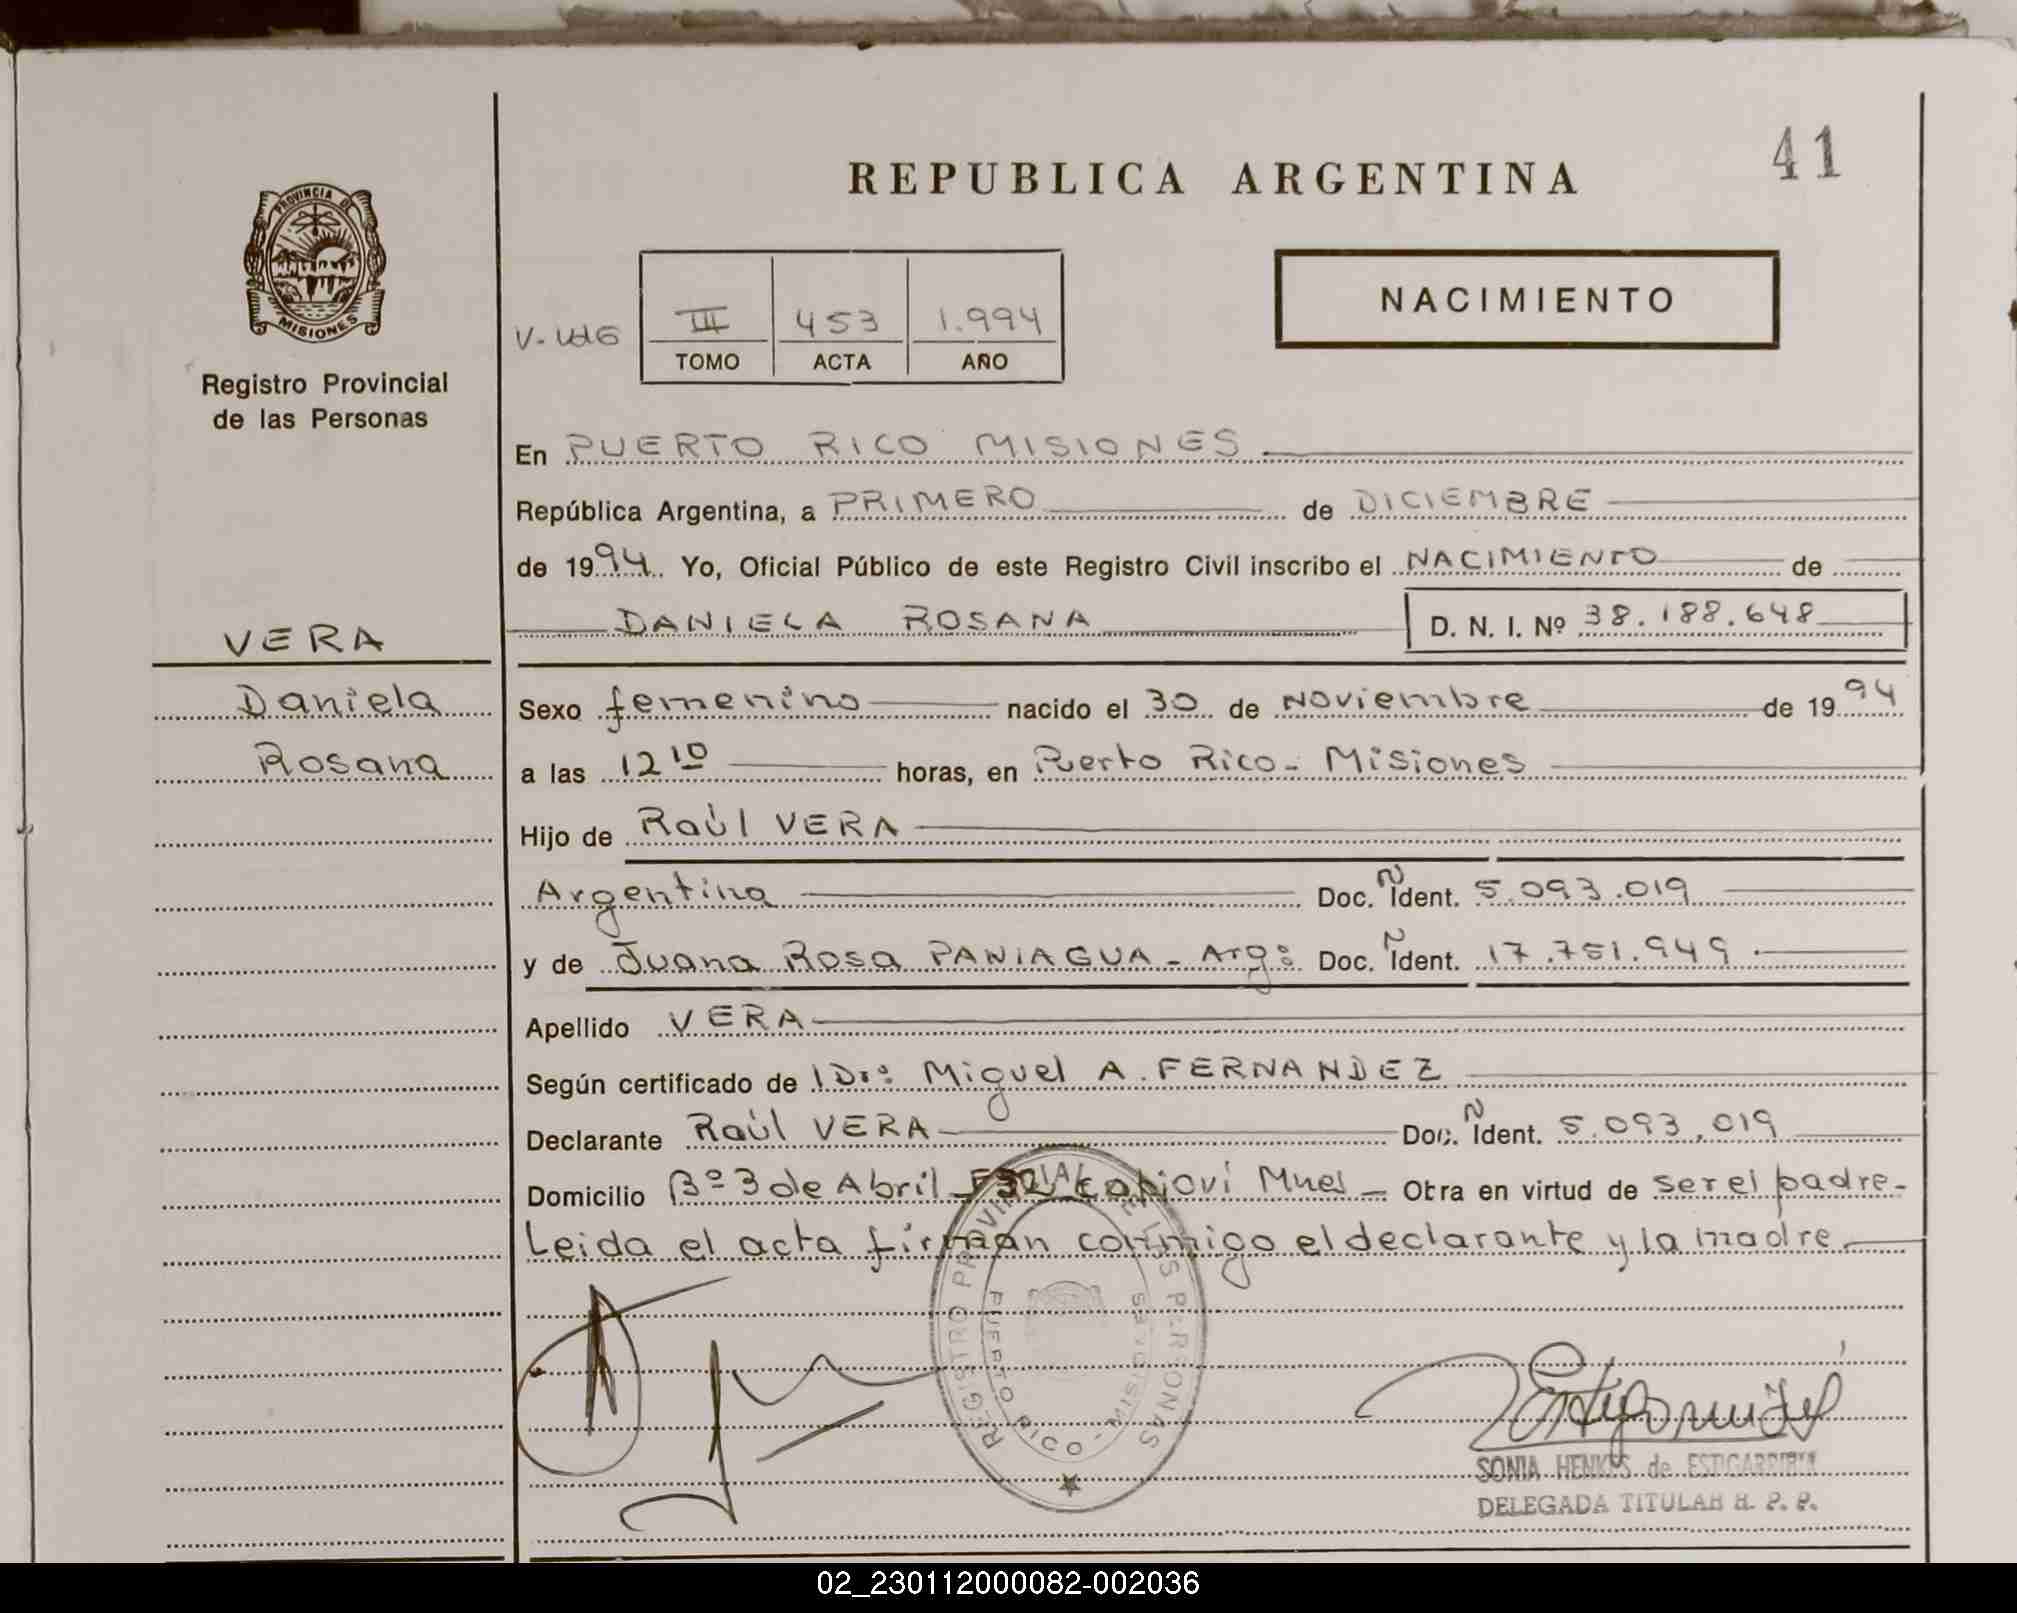 41
REPUBLICA ARGENTINA
PROVINCIA DE
MISIONES
Registro Provincial
de las Personas
NACIMIENTO
III 453 1.994
TOMO ACTA AÑO
En PUERTO RICO MISIONES
República Argentina, a PRIMERO de DICIEMBRE
de 1994. Yo, Oficial Público de este Registro Civil inscribo el NACIMIENTO de
DANIELA ROSANA D. N. I. Nº 38.188.648
VERA
Daniela
Rosana
Sexo femenino nacido el 30 de Noviembre de 1994
a las 12 10 horas, en Puerto Rico - Misiones
Hijo de Raúl VERA
Argentina Doc. Ñ Ident. 5.093.019
y de Juana Rosa PANIAGUA - Arg: Doc. Ñ Ident. 17.751.949
Apellido VERA
Según certificado de Dr: Miguel A. FERNANDEZ
Declarante Raúl VERA Doc. Ñ Ident. 5.093.019
Domicilio Bº 3 de Abril Capioví Mnes - Obra en virtud de ser el padre-
Leida el acta firman conmigo el declarante y la madre
REGISTRO PROVINCIAL DE LAS PERSONAS
PUERTO RICO - MISIONES
SONIA HENKES de ESTIGARRIBIA
DELEGADA TITULAR R. P. P.
02_230112000082-002036